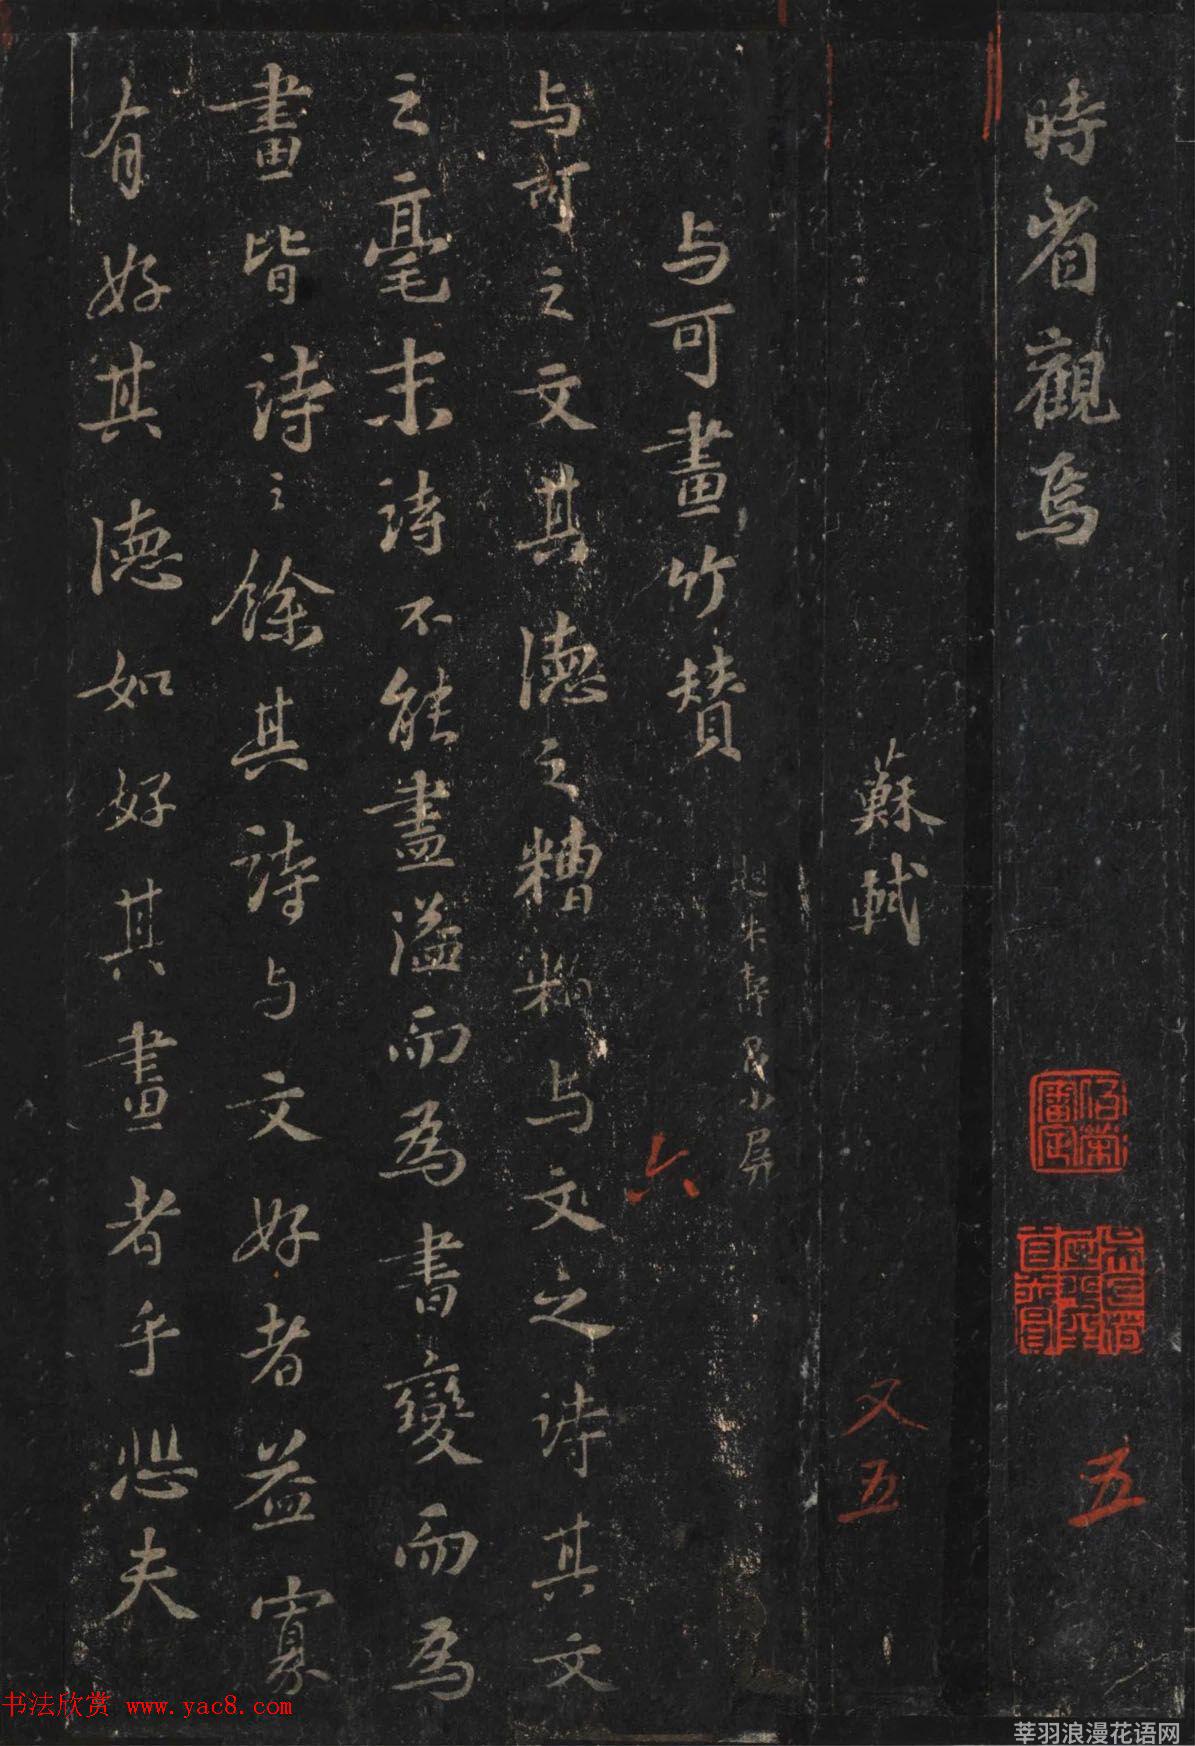 時省觀焉
五
蘇軾
又五
与可畫竹贊
朱壽昌小屏
六
与可之文其德之糟粕与文之詩其文
之毫末詩不能盡溢而為書變而為
畫皆詩之餘其詩与文好者益寡
有好其德如好其畫者乎悲夫
书法欣赏 www.yac8.com
莘羽浪漫花语网